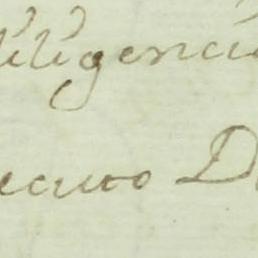 diligencia
ecuto D